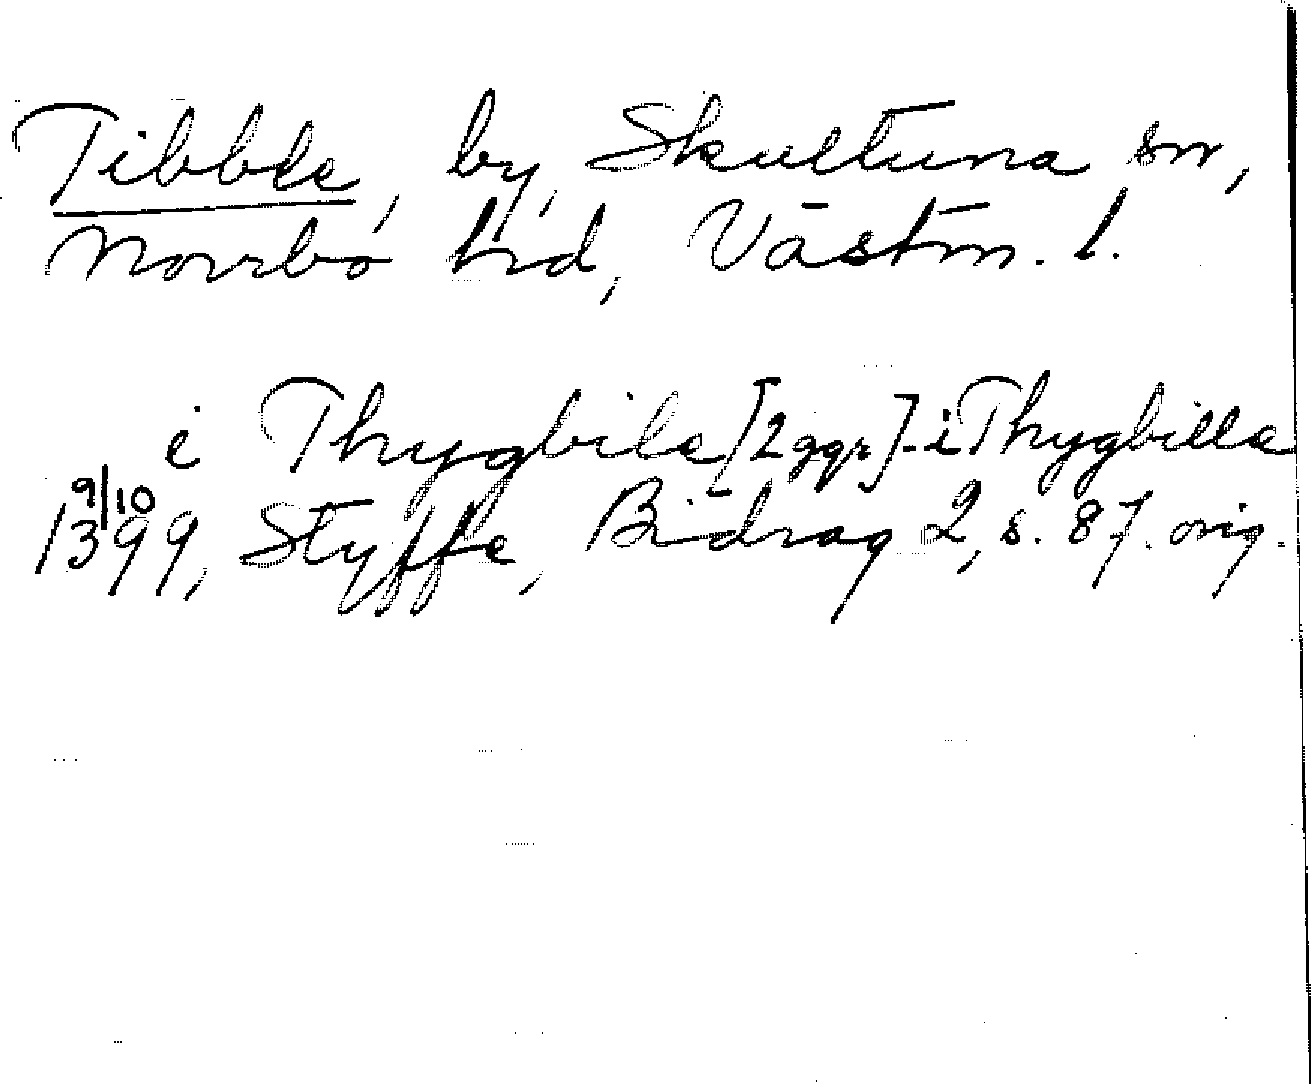 Tibble, by, Skultuna sn,
Norrbo hd, Västm. l.
i Thygbile [2 ggr] - i Thygbille
9/10
1399, Styffe, Bidrag 2, s. 87. orig.